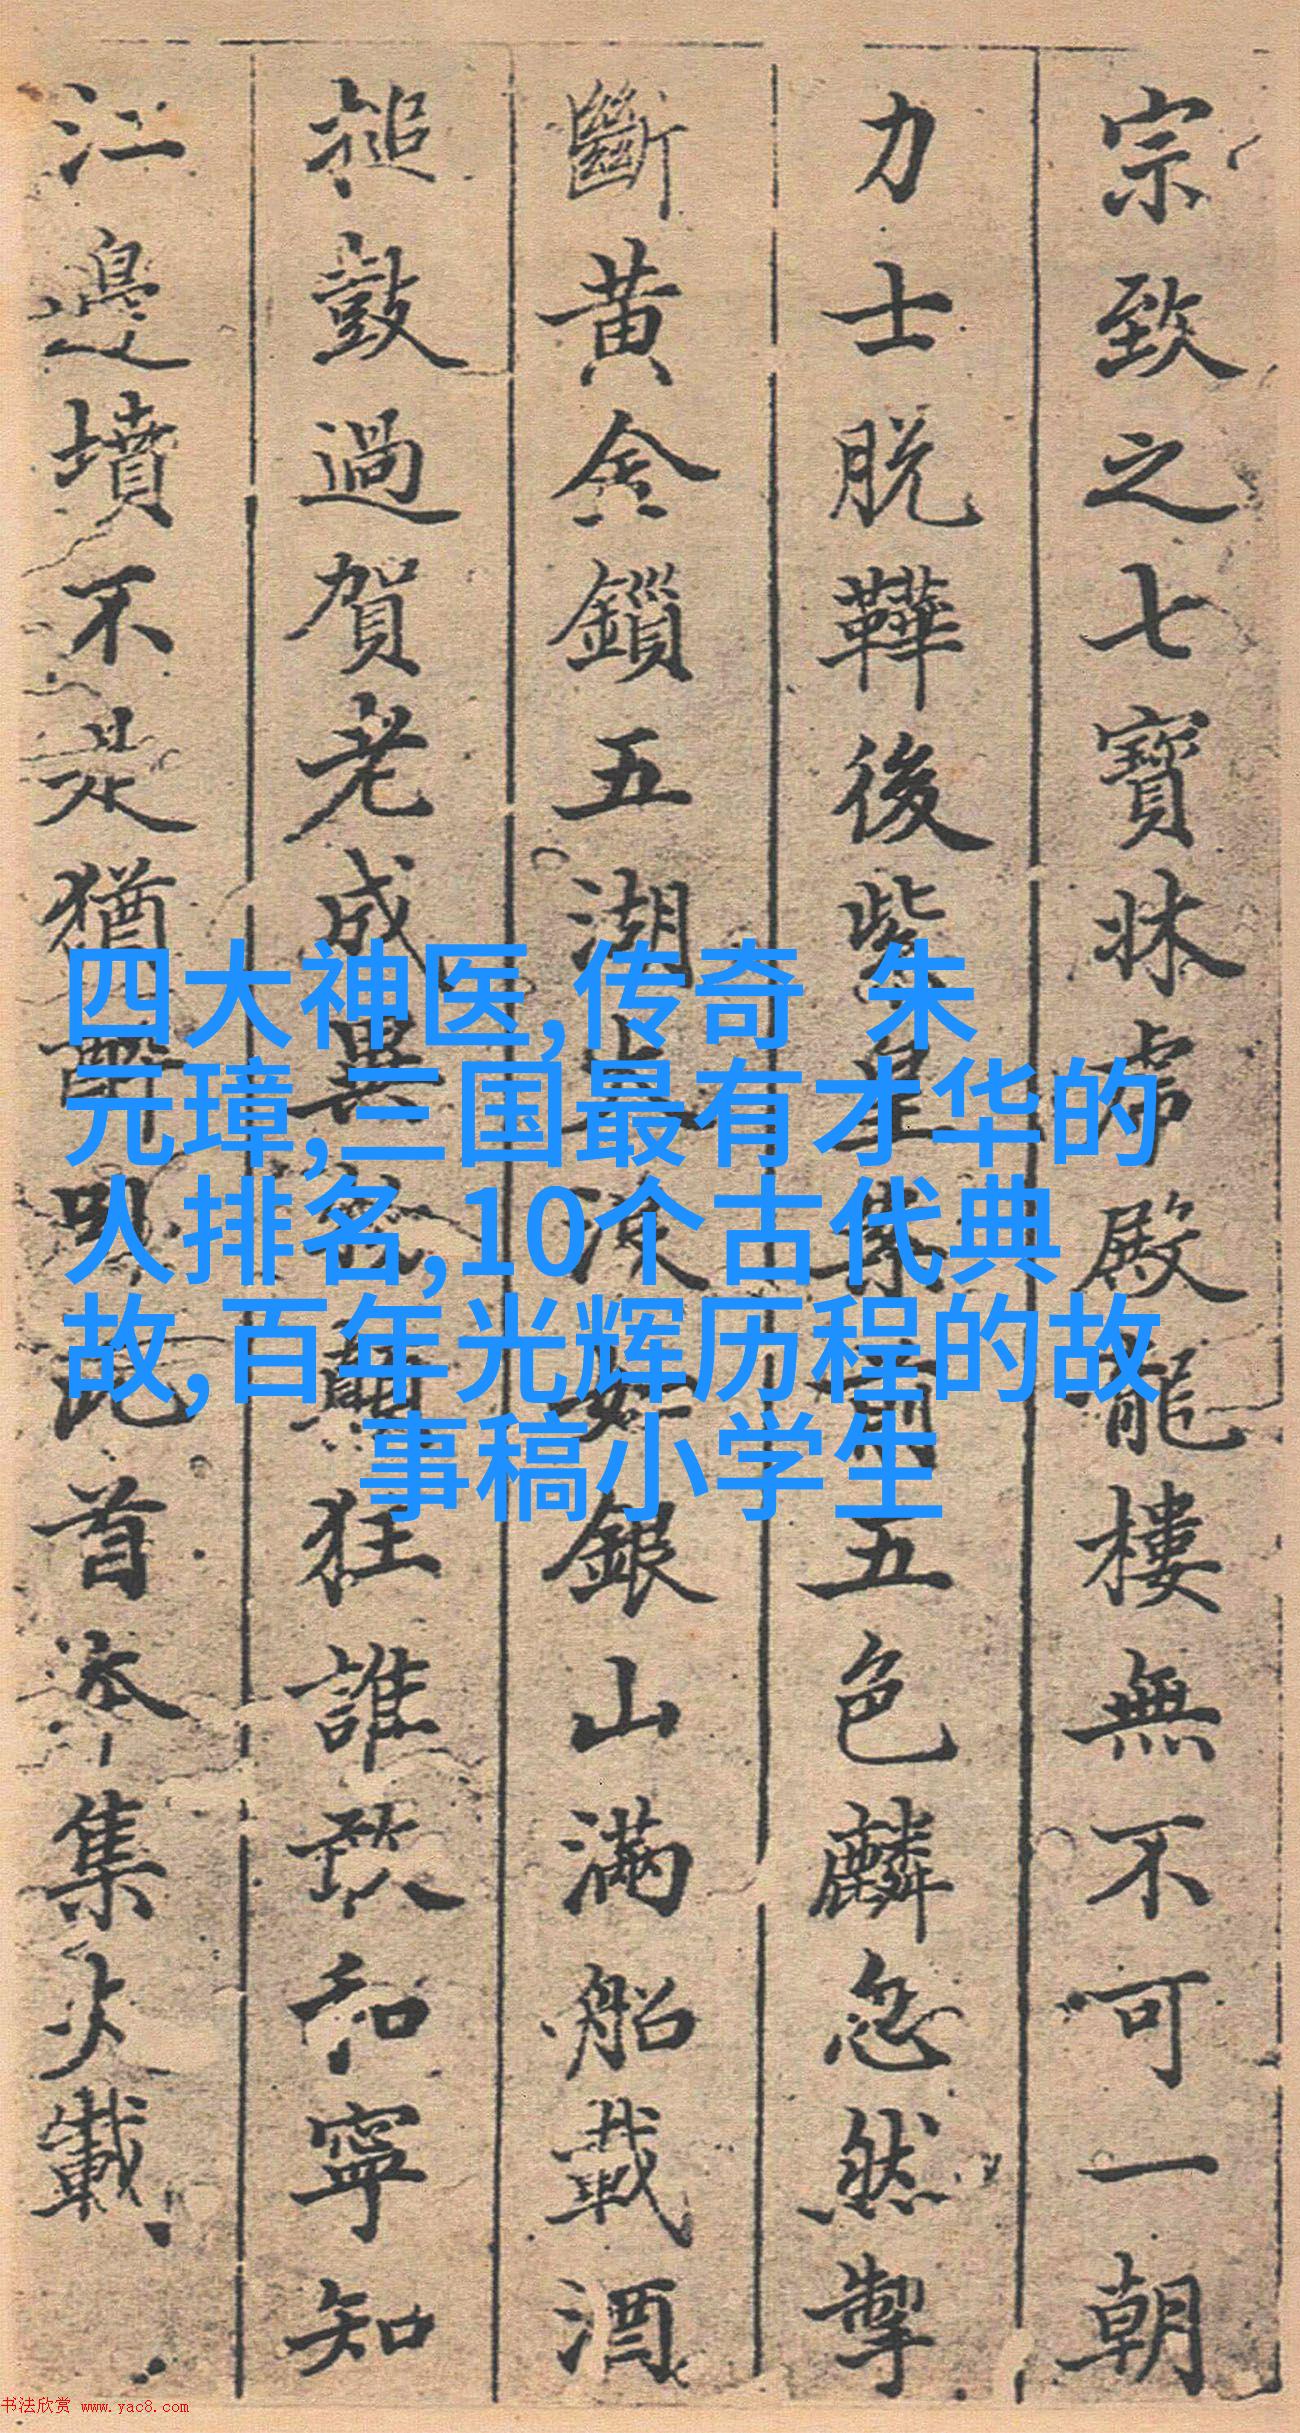 宗致之七寶牀虎殿龍樓無不可一朝
力士脱鞾後紫皇案前五色麟忽然掣
斷黄金鎖五湖大浪如銀山滿船載酒
搥鼓過賀老成異物顛狂誰敢和寧知
江邊墳不是猶醉卧此首本集火載
四大神医,传奇 朱
元璋,三国最有才华的
人排名,10个古代典
故,百年光辉历程的故
事稿小学生
书法欣赏 www.yac8.com